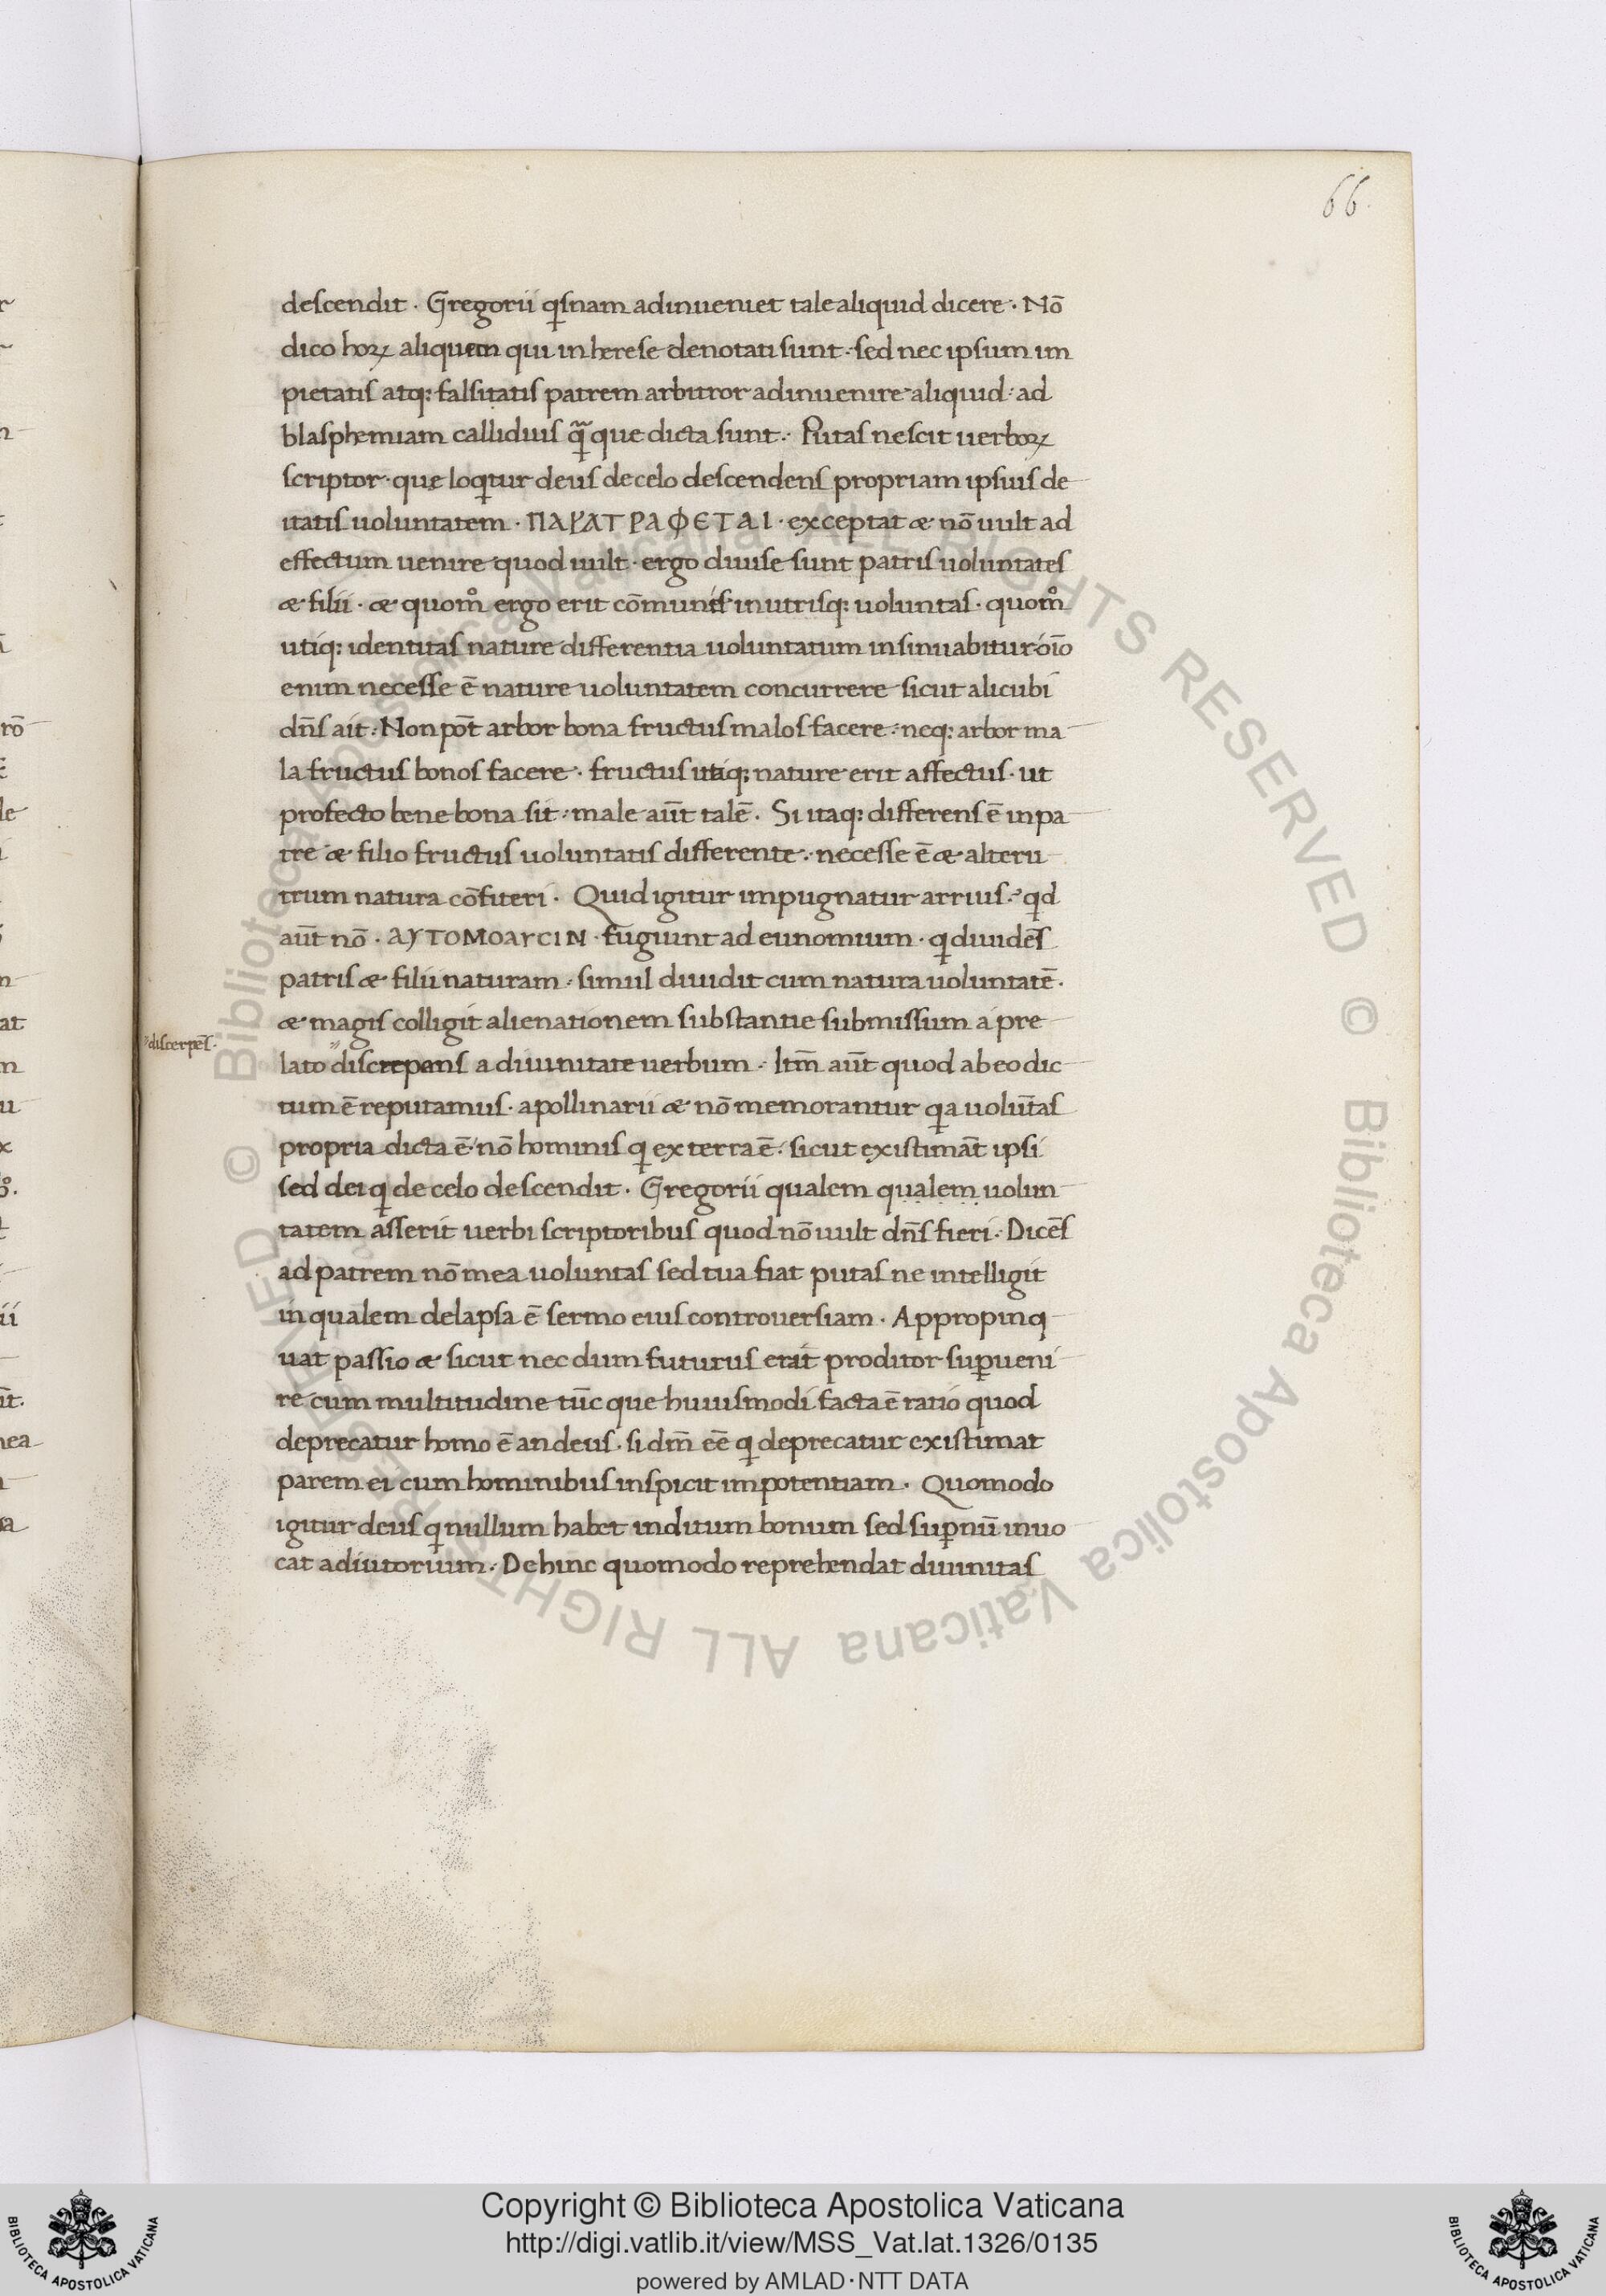 66.
descendit · Gregorii qͥsnam adinueniet tale aliquid dicere · Nō
dico hoꝝ aliquem qui in herese denotati sunt · sed nec ipsum im
pietatis atq: falsitatis patrem arbitror adinuenire aliquid · ad
blasphemiam callidius qͣ̃ que dicta sunt · Putas nescit uerboꝝ
scriptor · que loqͥtur deus de celo descendens propriam ipsius de
itatis uoluntatem · ΠΑΡΑΤΡΑΦΕΤΑΙ · exceptat & nō uult ad
effectum uenire quod uult · ergo diuise sunt patris uoluntates
& filii · & quom̊ ergo erit cōmunis in utrisq: uoluntas · quom̊
utiq: identitas nature differentia uoluntatum insinuabitur oīo
enim necesse ē nature uoluntatem concurrere sicut alicubi
dn̄s ait · Non pōt arbor bona fructus malos facere · neq: arbor ma
la fructus bonos facere · fructus utiq; nature erit affectus · ut
profecto bene bona sit · male aūt talē · Si itaq: differens ē in pa
tre & filio fructus uoluntatis differente · necesse ē & alteru
trum natura cōfiteri · Quid igitur impugnatur arrius · qͥd
aūt nō · ΑΥΤΟΜΟΑΥCΙΝ · fugiunt ad eunomium · qͥ diuidēs
patris & filii naturam · simul diuidit cum natura uoluntatē ·
& magis colligit alienationem substantie submissum a pre
"discerpēs ·
lato "discrepans a diuinitate uerbum · Itm̄ aūt quod ab eo dic
tum ē reputamus · apollinarii & nō memorantur qͥa uolūtas
propria dicta ē · nō hominis qͥ ex terra ē · sicut existimāt ipsi
sed dei qͥ de celo descendit · Gregorii qualem qualem uolun
tatem asserit uerbi scriptoribus quod nō uult dn̄s fieri · Dicēs
ad patrem nō mea uoluntas sed tua fiat putas ne intelligit
in qualem delapsa ē sermo eius controuersiam · Appropinq
uat passio & sicut nec dum futurus erat proditor suꝑueni
re cum multitudine tūc que huiusmodi facta ē ratio quod
deprecatur homo ē an deus · si dm̄ eē qͥ deprecatur existimat
parem ei cum hominibus inspicit impotentiam · Quomodo
igitur deus qͥ nullum habet inditum bonum sed suꝑnū inuo
cat adiutorium · Dehinc quomodo reprehendat diuinitas
© Biblioteca Apostolica Vaticana ALL RIGHTS RESERVED © Biblioteca Apostolica Vaticana ALL RIGHTS RESERVED
Copyright © Biblioteca Apostolica Vaticana
http://digi.vatlib.it/view/MSS_Vat.lat.1326/0135
powered by AMLAD·NTT DATA
BIBLIOTECA APOSTOLICA VATICANA
BIBLIOTECA APOSTOLICA VATICANA